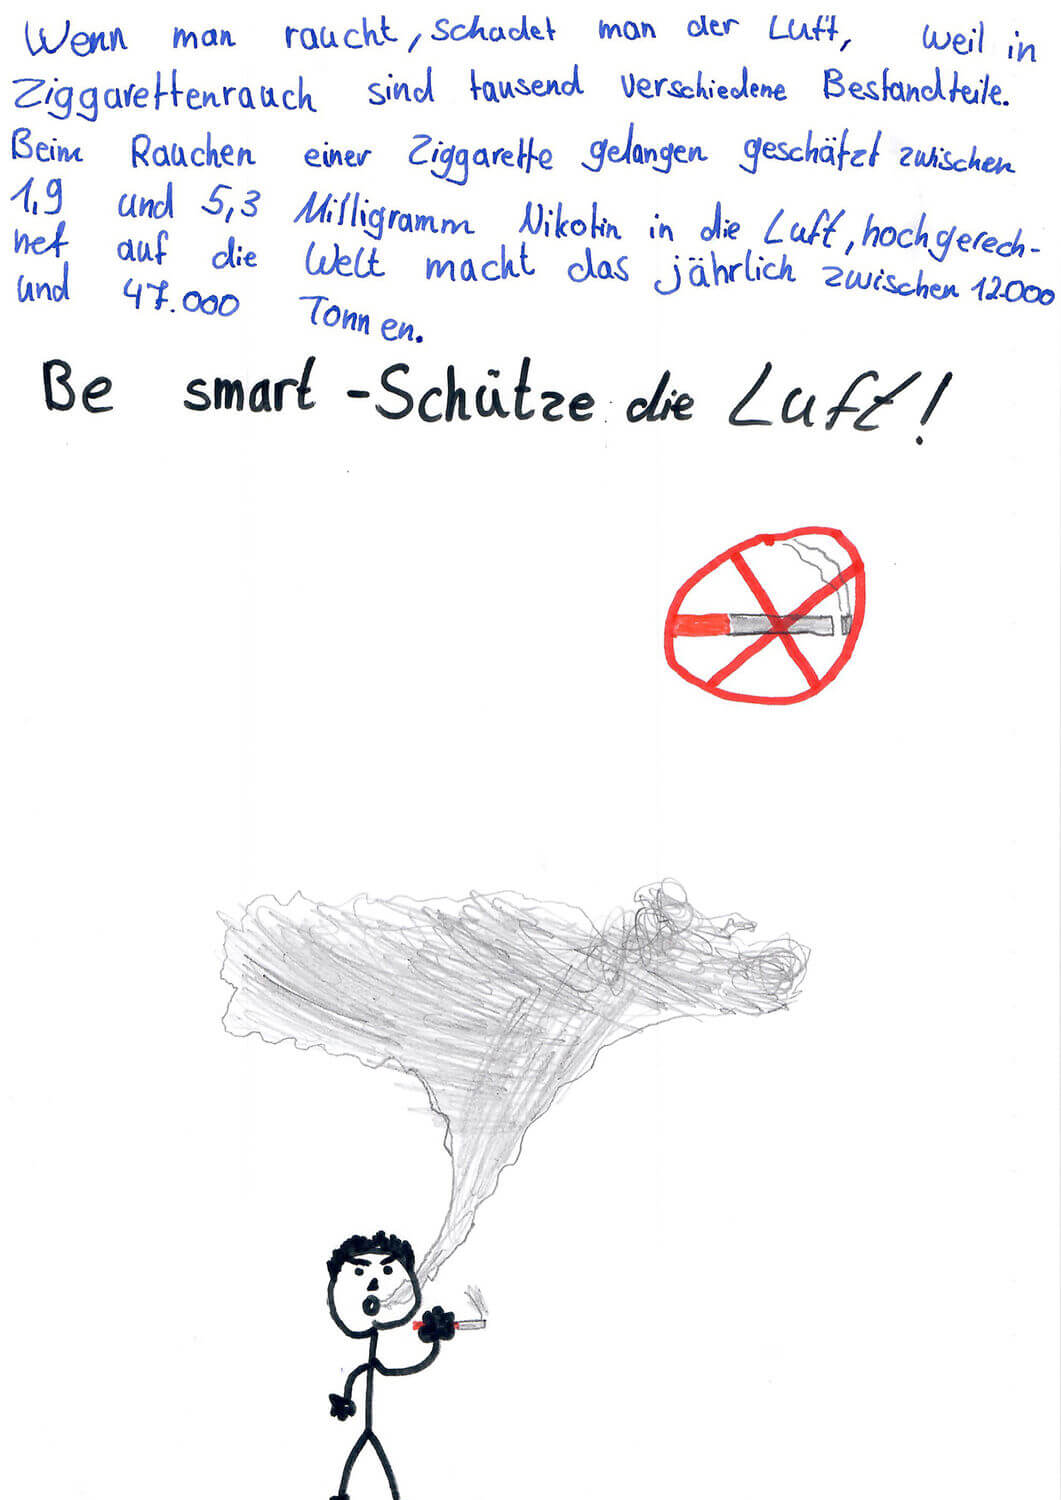 Wenn man raucht, schadet man der Luft, weil in
Ziggarettenrauch sind tausend verschiedene Bestandteile.
Beim Rauchen einer Ziggarette gelangen geschätzt zwischen
1,9 und 5,3 Milligramm Nikotin in die Luft, hochgerech-
net auf die Welt macht das jährlich zwischen 12000
und 47.000 Tonnen.
Be smart - Schütze die Luft!